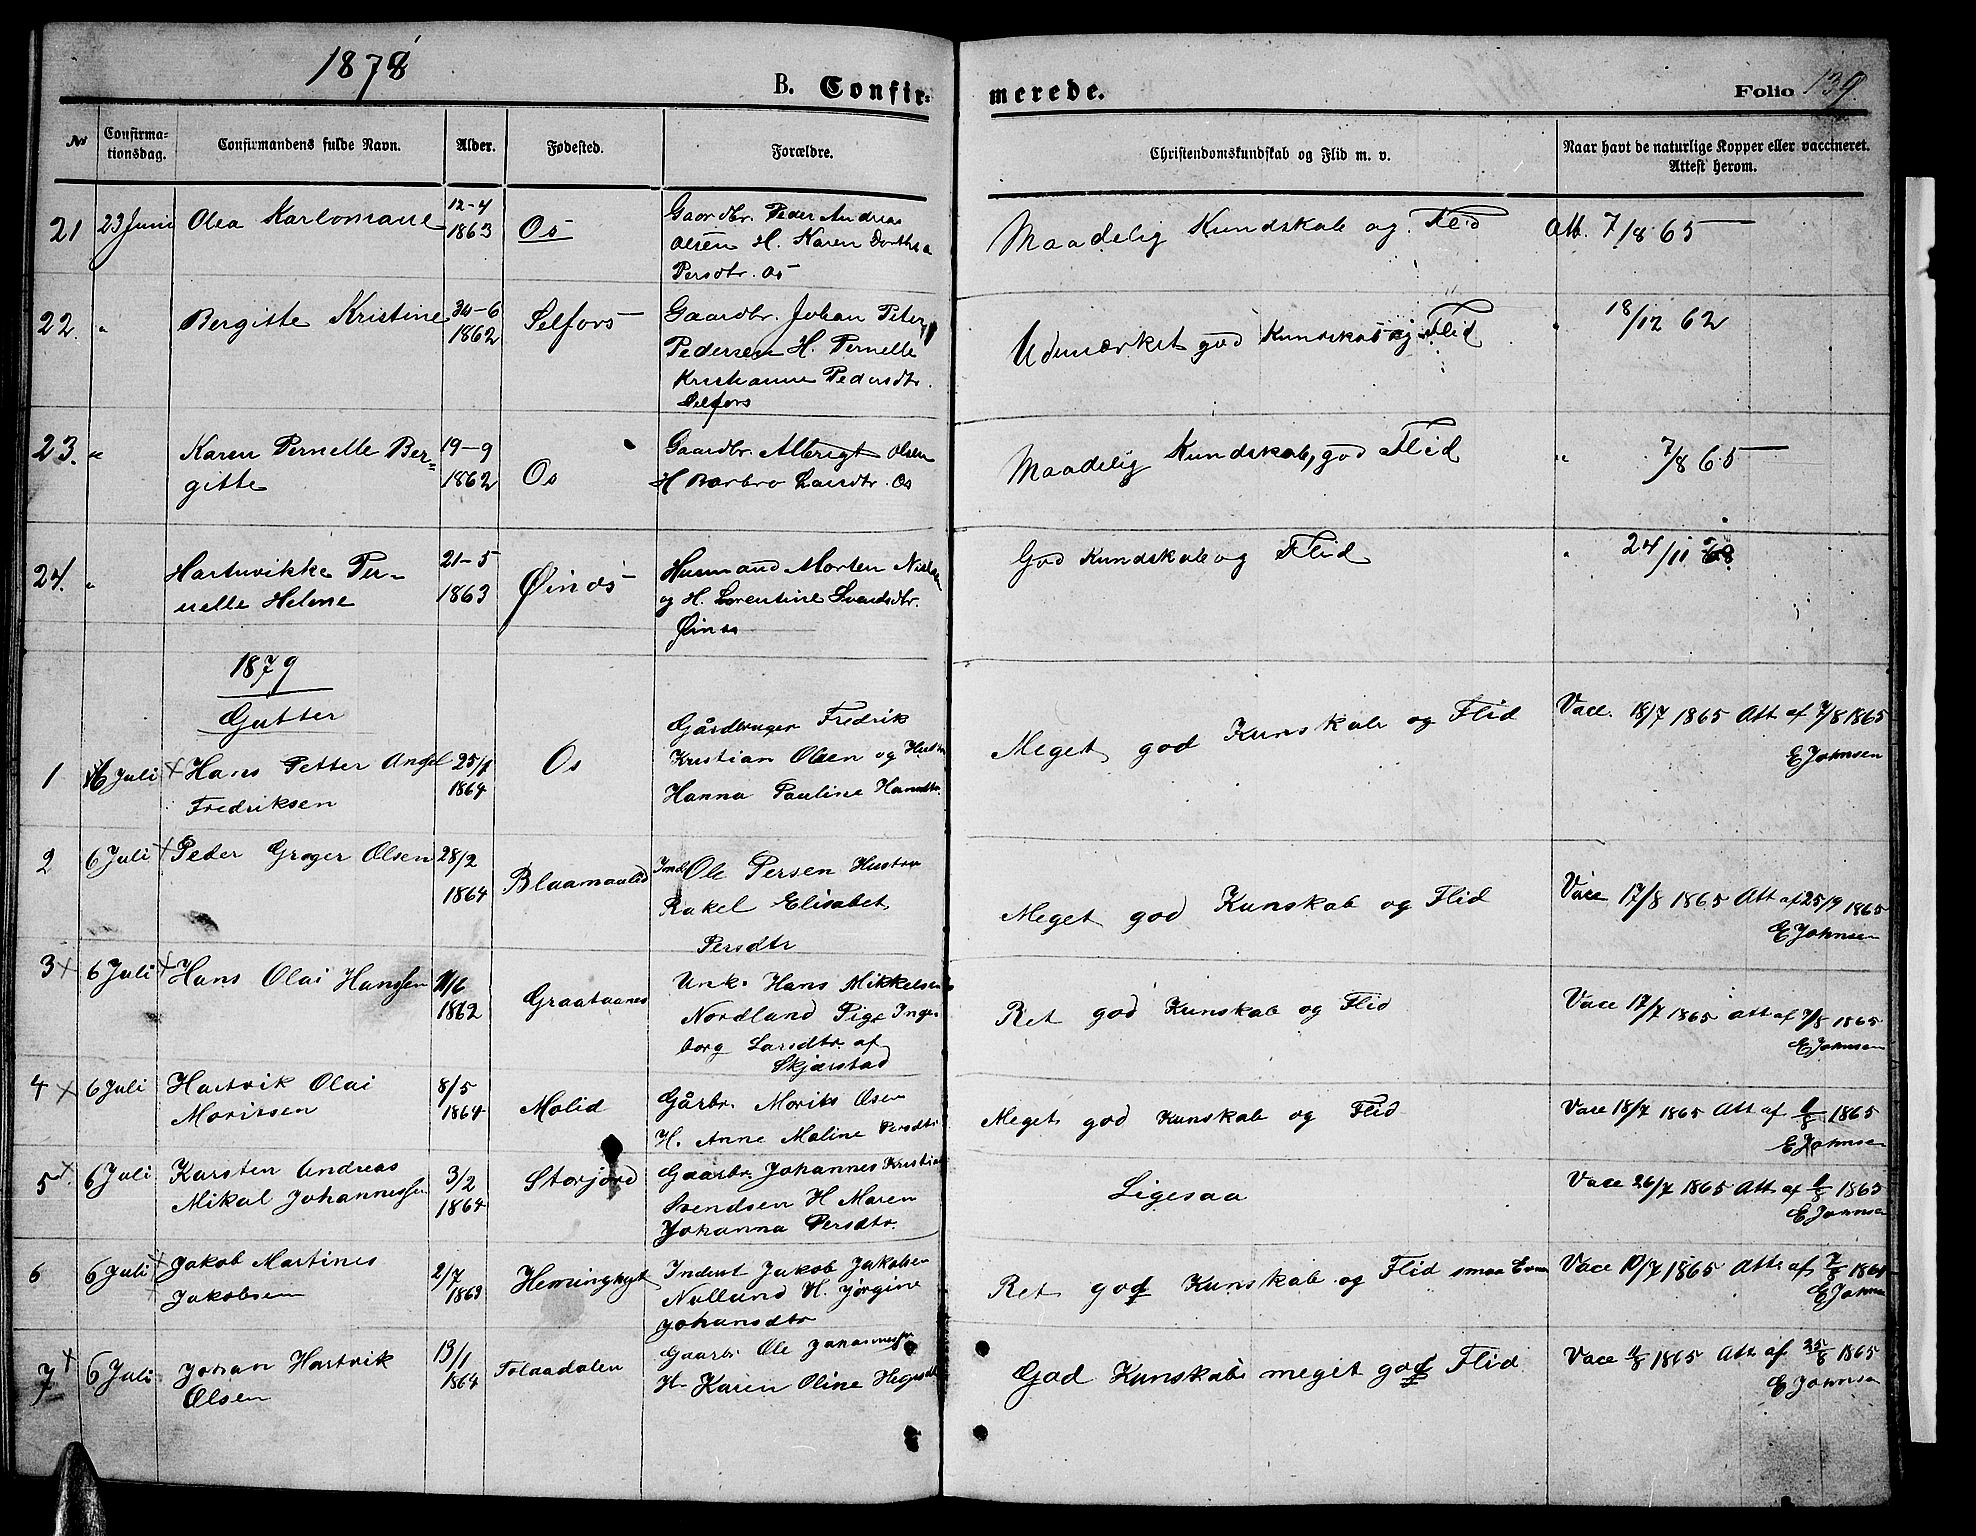 1878
B. Confirmerede.
Folio 139.
No
Confirmationsdag.
Confirmandens fulde Navn.
Alder.
Fødested.
Forældre.
Christendomskundskab og Flid m. v.
Naar havt de naturlige Kopper eller vaccineret.
Attest herom.
21 23 Juni Olea Karlomane 12-4 1863 Os
Gaardbr. Peder Andreas
Olsen H. Karen Dorthea
Persdtr. Os
Maadelig Kundskab og Flid Att. 7/8 65
22. " Bergitte Kristine 30-6 1862 Selfors
Gaardbr. Johan Peter
Pedersen H. Pernelle
Kristianne Pedersdtr.
Selfors
Udmærket god Kundskab og Flid " 18/12 62
23. " Karen Pernelle Ber=
gitte 19-9 1862 Os
Gaardbr. Albrigt Olsen
H Barbro Larsdtr. Os
Maadelig Kundskab, god Flid " 7/8 65
24. " Hartvikke Per-
nelle Helene 21-5 1863 Øinæs
Husmand Morten Nielsen
og H. Lorentine Svendsdtr.
Øinæs
God Kundskab og Flid " 24/11
1879
Gutter
1 6 Juli + Hans Petter Angel
Fredriksen 25/1 1864 Os
Gårdbruger Fredrik
Kristian Olsen og Hustru
Hanna Pauline Hansdtr.
Meget god Kunskab og Flid
Vacc. 18/7 1865 Att af 7/8 1865
E Johnsen
2 6 Juli + Peder Greger Olsen 28/2 1864 Blaamaalid
Ind. Ole Persen Hustru
Rakel Elisabet
Persdtr
Meget god Kunskab og Flid
Vacc 17/8 1865 Att af 25/9 1865
E Johnsen
3 + 6 Juli + Hans Olai Hanssen 11/6 1862 Graataanes
Unk. Hans Mikkelsen
Nordland Pige Inge
borg Larsdtr af
Skjærstad
Ret god Kunskab og Flid
Vacc 17/7 1865 att af 7/8 1865
E Johnsen
4 + 6 Juli Hartvik Olai
Moritsen 8/5 1864 Molid
Gårbr. Morits Olsen
H. Anne Maline Persdtr
Meget god Kunskab og Flid
Vacc 18/7 1865 Att af 1/8 1865
E Johnsen
5 + 6 Juli Karsten Andreas
Mikal Johannessen 3/2 1864 Storjord
Gaarbr. Johannes Kristian
Svendsen H Maren
Johanna Persdtr.
Ligesaa
Vacc 26/7 1865 Att af 1/8 1865
E Johnsen
6 6 Juli + Jakob Martines
Jakobsen 2/7 1863
Inderst Jakob Jakobsen
H. Jørgine
Johansdtr
Ret god Kunskab og Flid smaa Evner
Vacc 10/7 1865 Att af 7/8 1865
E Johnsen
7 + 6 Juli Johan Hartvik
Olsen 13/1 1864
Gaarbr Ole Johannessen
H. Karen Oline
God Kunskab meget god Flid
Vacc 1/8 1865 Att af 25/8 1865
E Johnsen